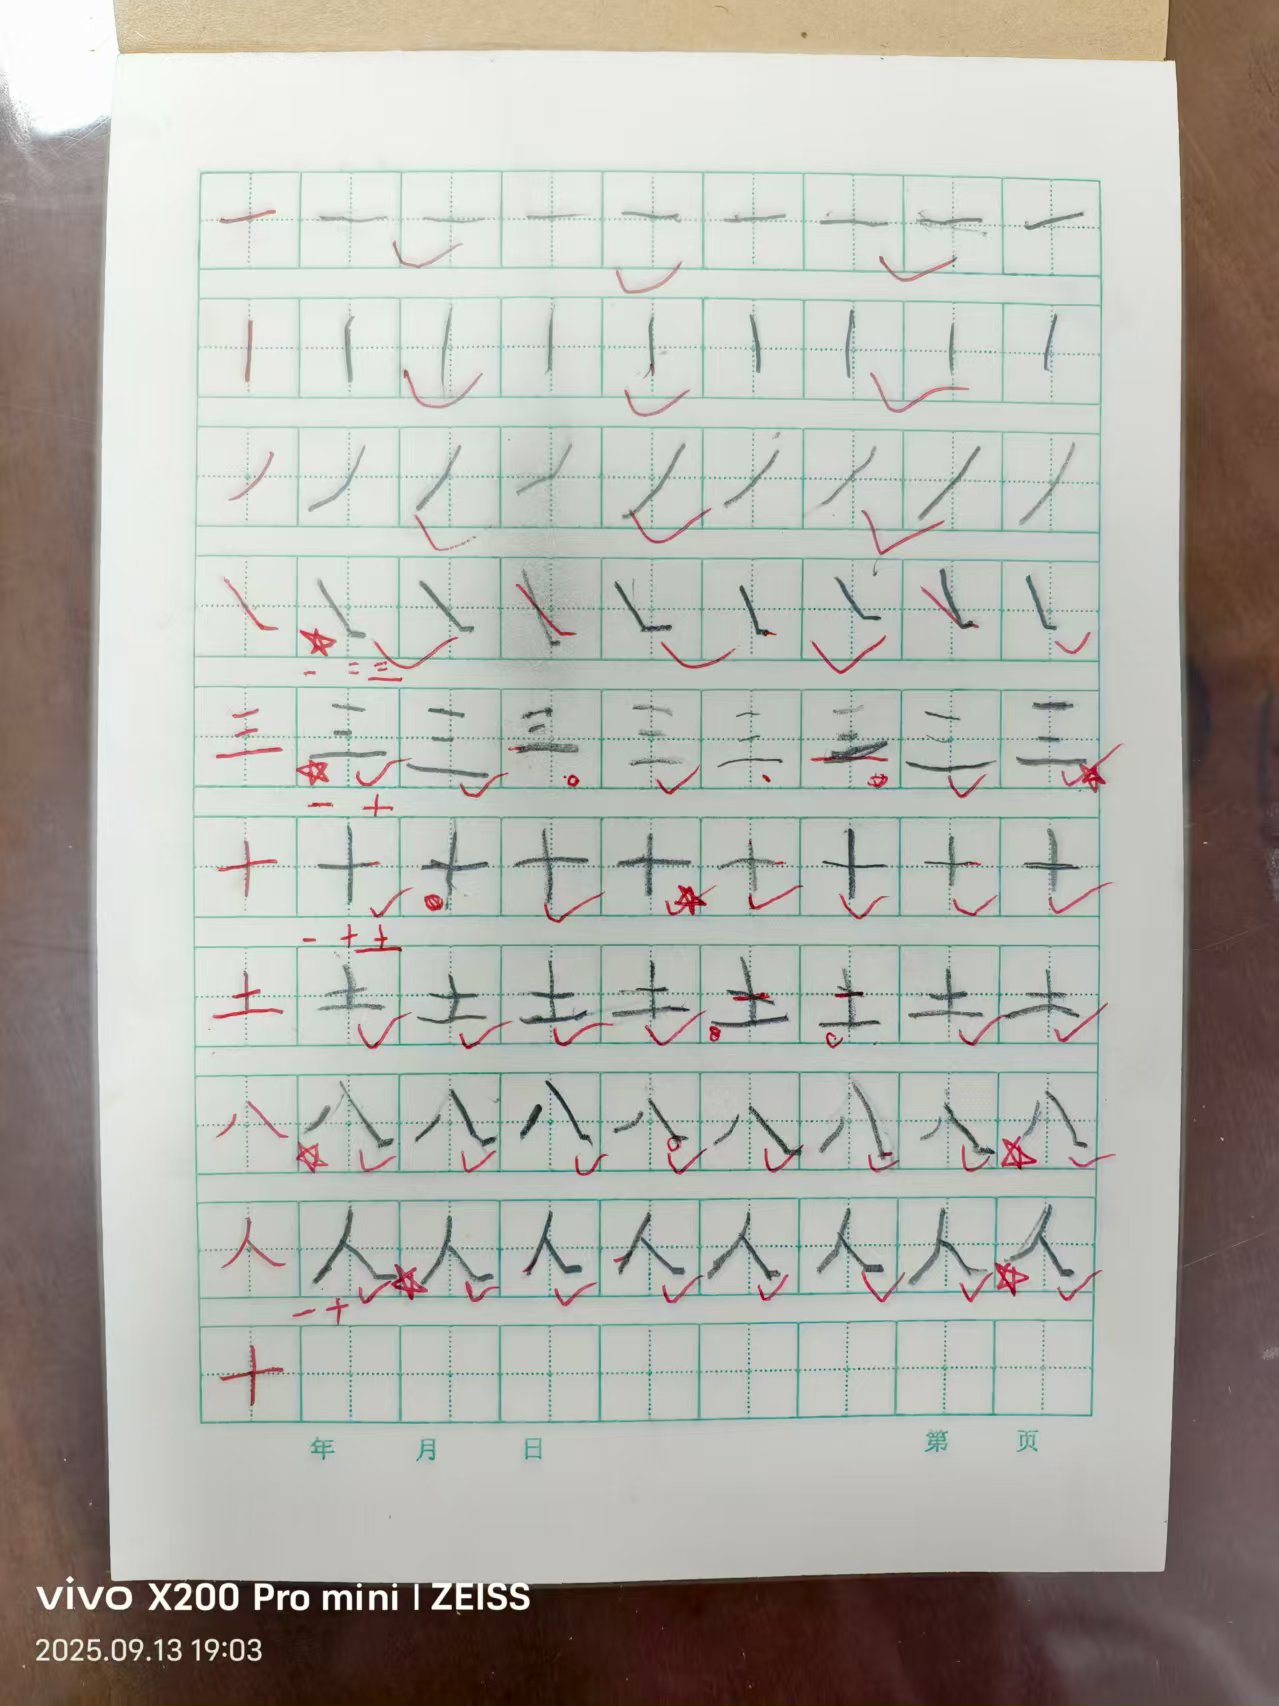 一 一 一 一 一 一 一 一 一
丨 丨 丨 丨 丨 丨 丨 丨 丨
丿 丿 丿 丿 丿 丿 丿 丿 丿
㇏ ㇏ ㇏ ㇏ ㇏ ㇏ ㇏ ㇏ ㇏
一 二 三
三 三 三 三 三 三 三 三 三
一 十
十 十 十 十 十 十 十 十 十
一 十 土
土 土 土 土 土 土 土 土 土
八 八 八 八 八 八 八 八 八
人 人 人 人 人 人 人 人 人
一 十
十
年 月 日 第 页
vivo X200 Pro mini | ZEISS
2025.09.13 19:03